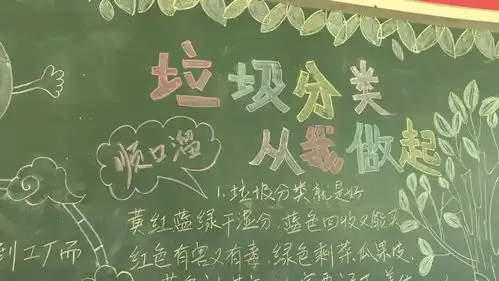 垃圾分类
从我做起
顺口溜
1.垃圾分类就是好
黄红蓝绿干湿分.蓝色回收又能卖
到工厂而
红色有害又有毒.绿色剩菜瓜果皮.